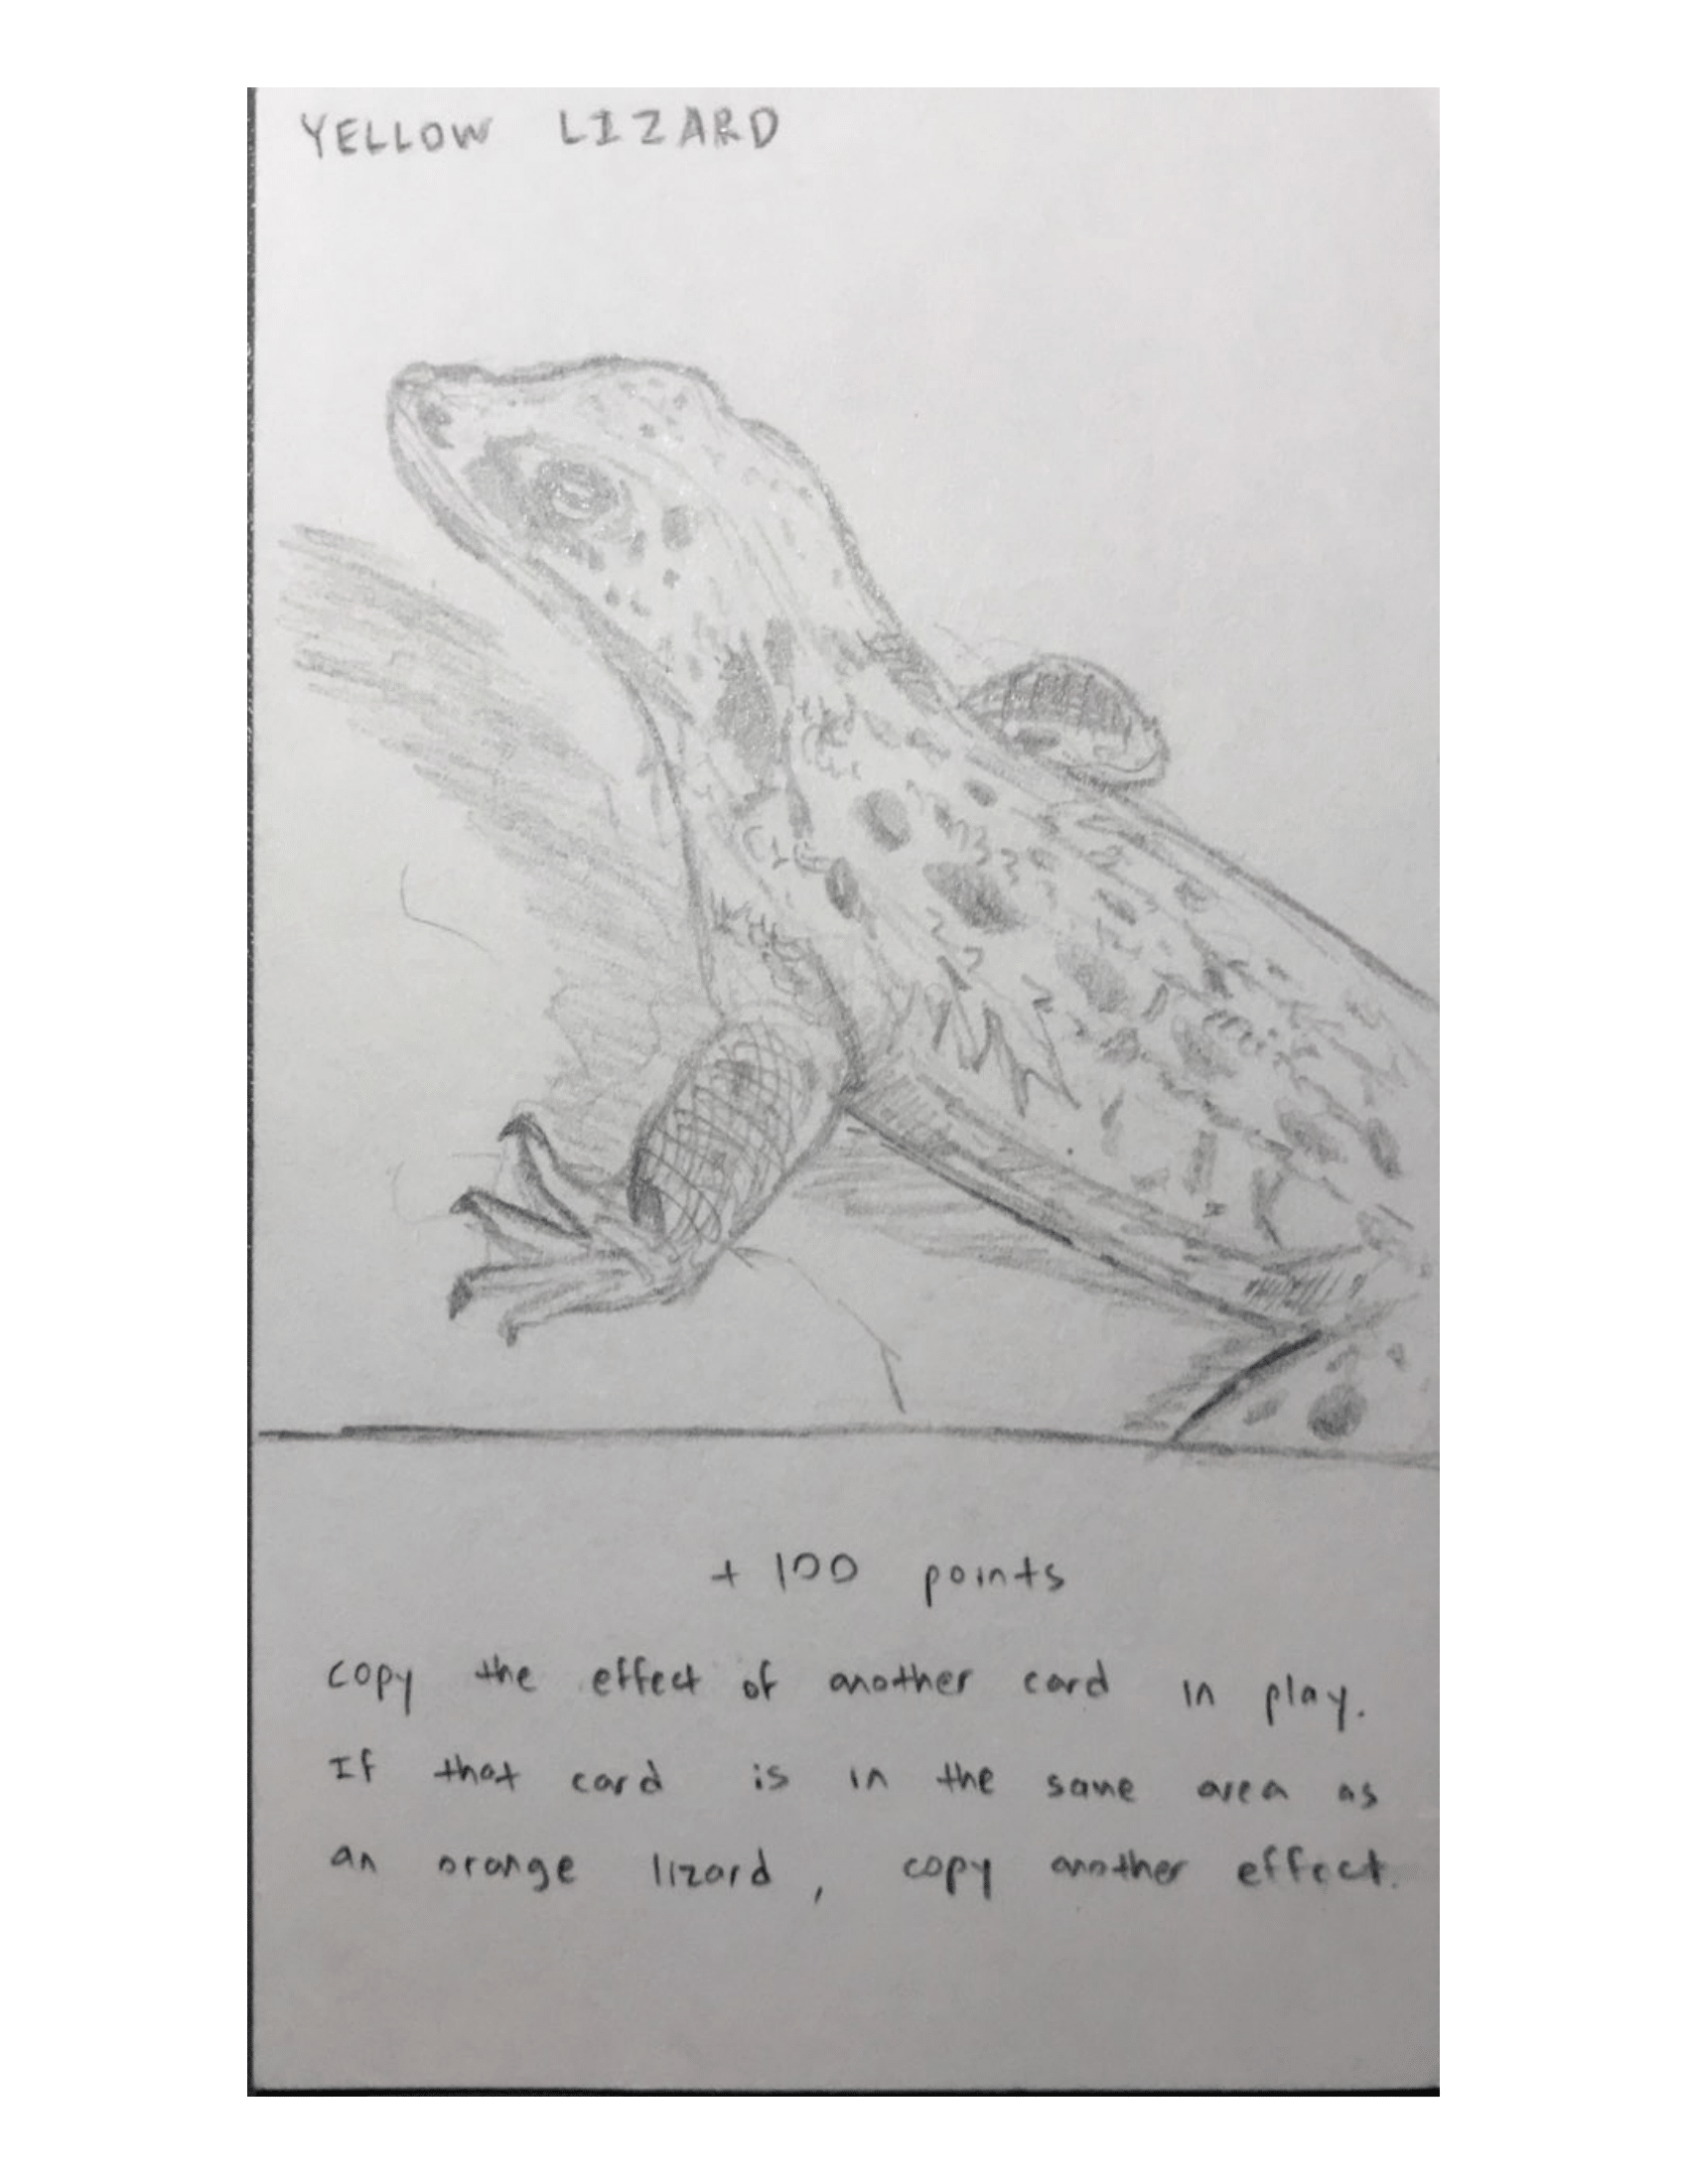 YELLOW LIZARD
+ 100 points
copy the effect of another card in play.
If that card is in the same area as
an orange lizard, copy another effect.